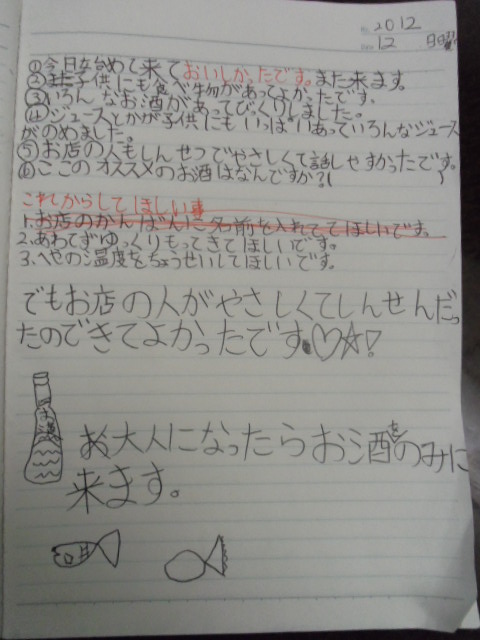 No. 2012
Date 12 日曜
①今日初めて来ておいしかったです。また来ます。
②子供にも食べ物があってよかったです。
③いろんなお酒があってびっくりしました。
④ジュースとかが子供にもいっぱいあっていろんなジュース
がのめました。
⑤お店の人もしんせつでやさしくて話しやすかったです。
⑥ここのオススメのお酒はなんですか?(     )
これからしてほしい事
1.お店のかんばんに名前を入れててほしいです。
2.あわてずゆっくりもってきてほしいです。
3.へやの温度をちょうせいしてほしいです。
でもお店の人がやさしくてしんせんだっ
たのできてよかったです。♡☆!
お酒
大人になったらお酒をのみに
来ます。